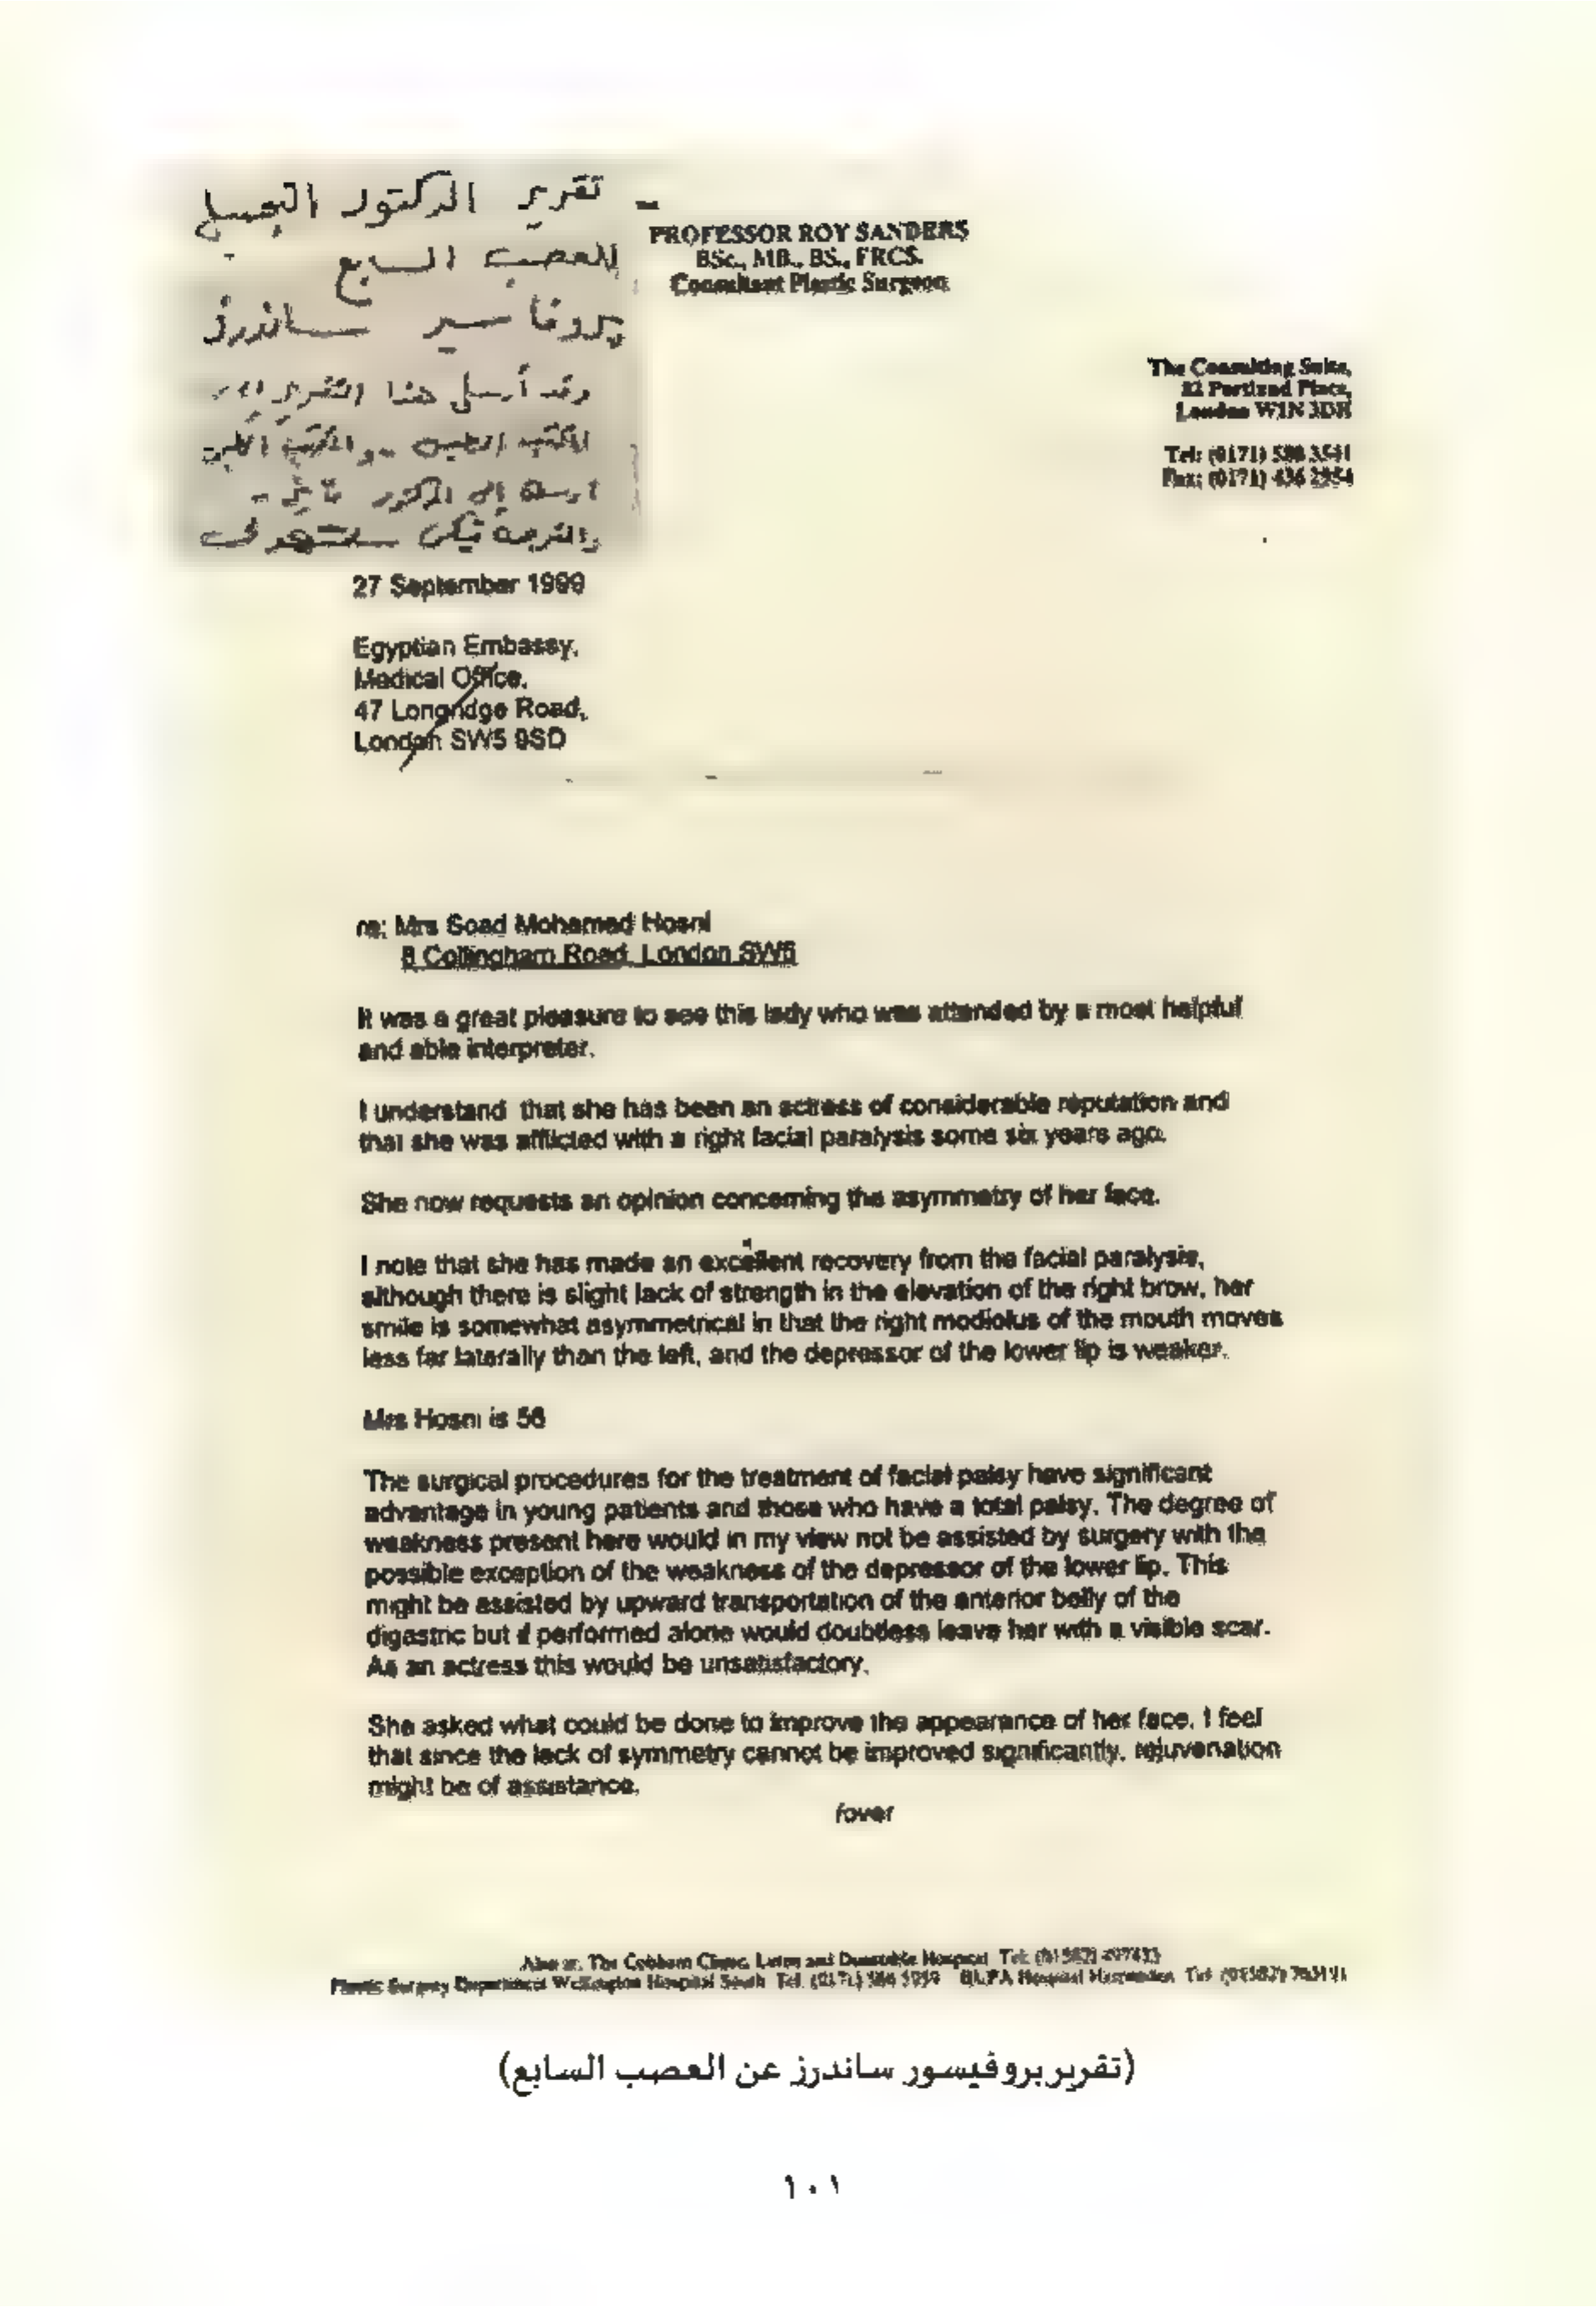 تقرير الدكتور التجميلى
للعصب السابع
بروفاسير ساندرز
وقد أرسل هذا التقرير
المكتب الطبى والمكتب الطبى
أرسله إلى الدكتور
والترجمة
PROFESSOR ROY SANDERS
BSc., MB., BS., FRCS.
Consultant Plastic Surgeon
The Consulting Suite,
82 Portland Place,
London W1N 3DH
Tel: (0171) 580 3541
Fax: (0171) 436 2954
27 September 1999
Egyptian Embassy,
Medical Office,
47 Longridge Road,
London SW5 9SD
re: Mrs Soad Mohamed Hosni
8 Collingham Road, London SW5
It was a great pleasure to see this lady who was attended by a most helpful
and able interpreter.
I understand that she has been an actress of considerable reputation and
that she was afflicted with a right facial paralysis some six years ago.
She now requests an opinion concerning the asymmetry of her face.
I note that she has made an excellent recovery from the facial paralysis,
although there is slight lack of strength in the elevation of the right brow, her
smile is somewhat asymmetrical in that the right modiolus of the mouth moves
less far laterally than the left, and the depressor of the lower lip is weaker.
Mrs Hosni is 56
The surgical procedures for the treatment of facial palsy have significant
advantage in young patients and those who have a total palsy. The degree of
weakness present here would in my view not be assisted by surgery with the
possible exception of the weakness of the depressor of the lower lip. This
might be assisted by upward transportation of the anterior belly of the
digastric but if performed alone would doubtless leave her with a visible scar.
As an actress this would be unsatisfactory.
She asked what could be done to improve the appearance of her face. I feel
that since the lack of symmetry cannot be improved significantly, rejuvenation
might be of assistance.
/over
Also at: The Cobham Clinic, Luton and Dunstable Hospital Tel: (01582) 497433
Plastic Surgery Department Wellington Hospital South Tel. BUPA Hospital Harpenden Tel
(تقرير بروفيسور ساندرز عن العصب السابع)
١٠١